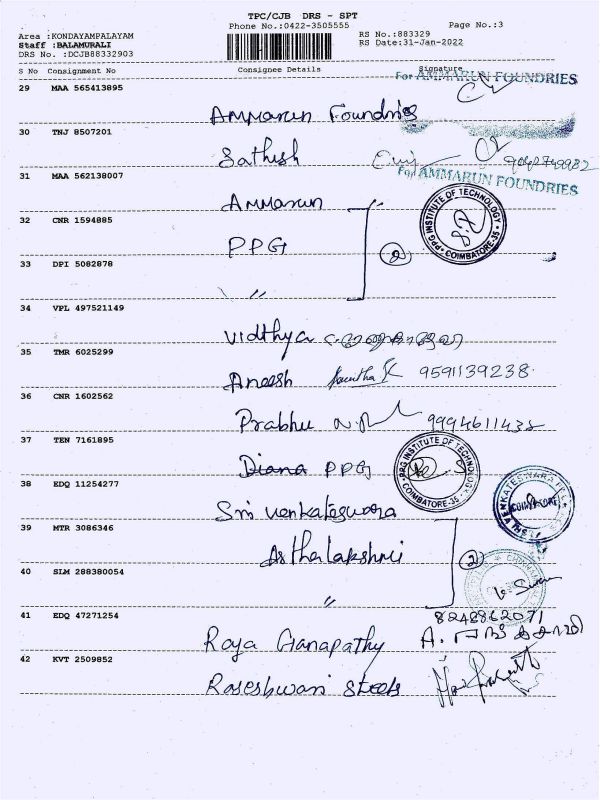 TPC/CJB DRS - SPT
Phone No.:0422-3505555
Page No.:3
Area :KONDAYAMPALAYAM
Staff :BALAMURALI
DRS No. :DCJB88332903
RS No.:883329
RS Date:31-Jan-2022
S No Consignment No Consignee Details Signature
For AMMARUN FOUNDRIES
29 MAA 565413895
Ammarun Foundries
30 TNJ 8507201
Sathish 9042749982
For AMMARUN FOUNDRIES
31 MAA 562138007
Ammarun
PPG INSTITUTE OF TECHNOLOGY
COIMBATORE-35
32 CNR 1594885
PPG
2
33 DPI 5082878
"
34 VPL 497521149
Vidthya
35 TMR 6025299
Aneesh 9591139238
36 CNR 1602562
Prabhu 9994611432
37 TEN 7161895
Diana PPG
PPG INSTITUTE OF TECHNOLOGY
COIMBATORE-35
38 EDQ 11254277
Sri Venkateswara
39 MTR 3086346
Asthalakshmi
2
40 SLM 288380054
"
8248862071
41 EDQ 47271254
Raja Ganapathy
42 KVT 2509852
Raseshwari Steels